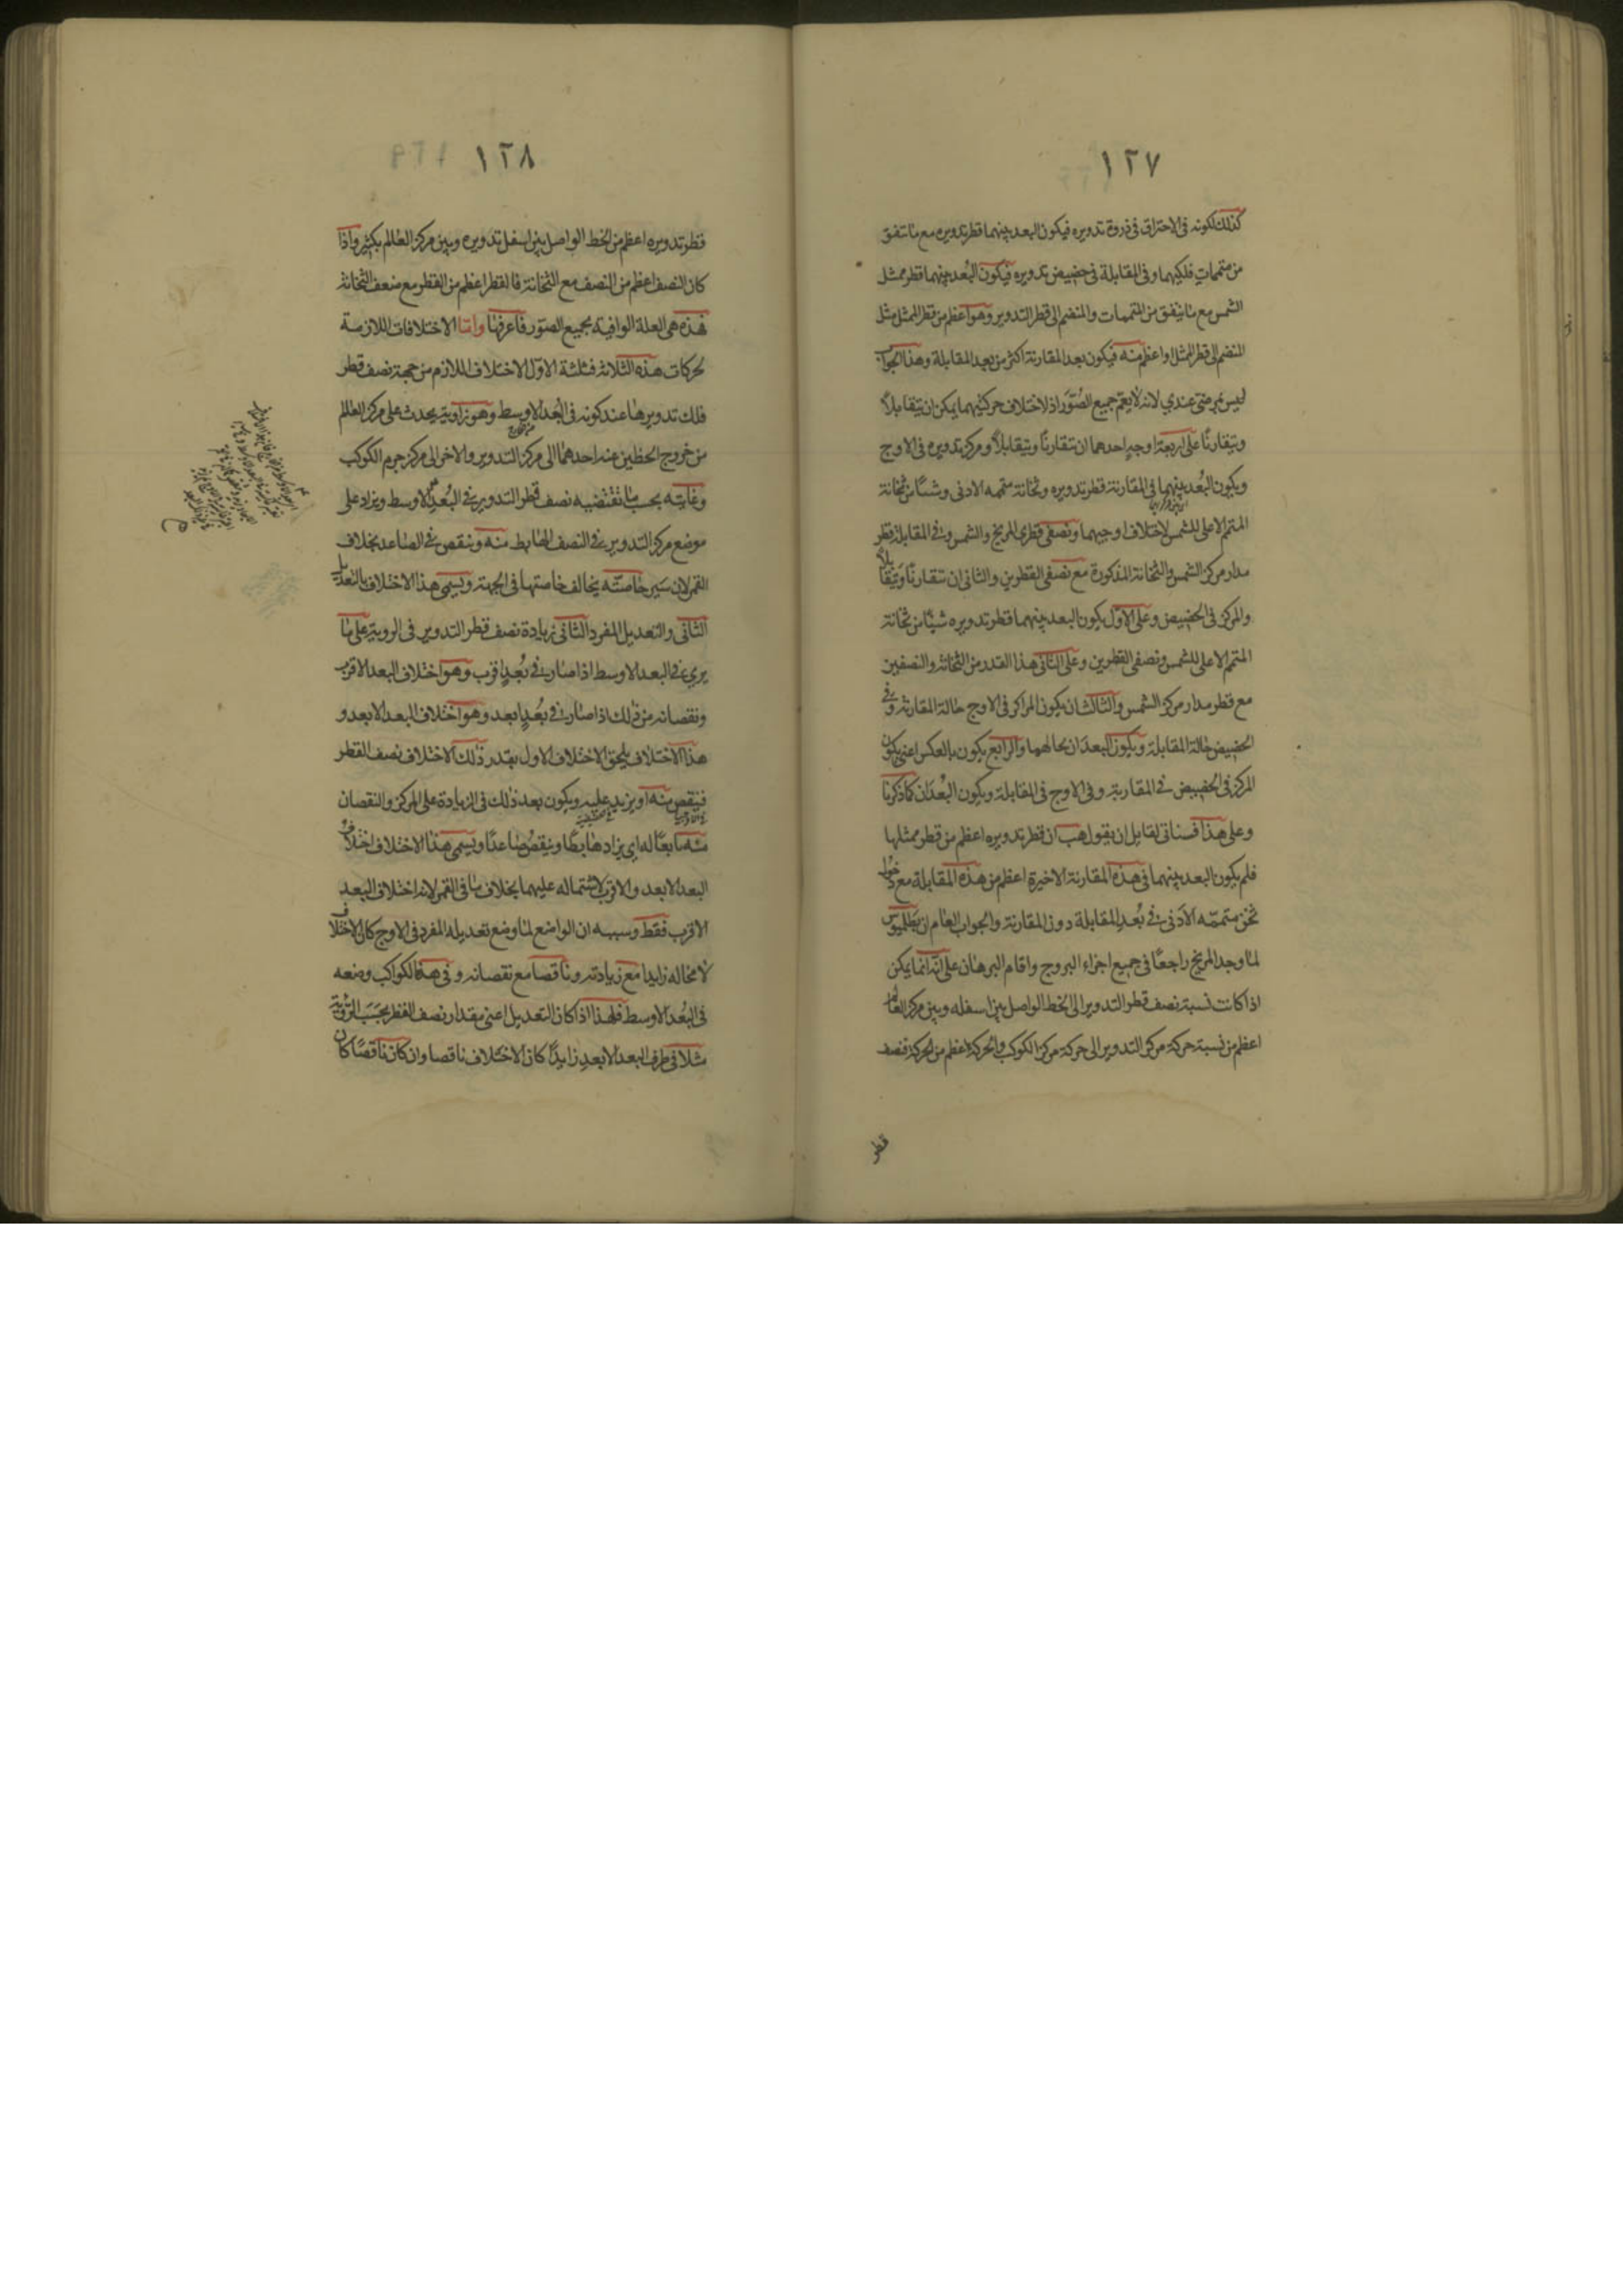 ١٢٧
كذلك لكونه فى الاحتراق فى ذروة تدويره فيكون البعد بينهما قطر تدويره مع ما تنفق
من متممات فلكيهما وفى المقابلة فى حضيض تدويره فيكون البُعد بينهما قطر ممثل
الشمس مع ما ينفق من المتممات والمنضم الى قطر التدوير وهو اعظم من قطر الممثل مثل
المنضم الى قطر الممثل او اعظم منه فيكون بعد المقارنة اكثر من بعد المقابلة وهذا الجواب
ليس بمرضى عندي لانه لا يعمّ جميع الصُوَر اذ لاختلاف حركتيهما يمكن ان يتقابلا
ويتقارنا على اربعة اوجه احدهما ان تتقارنا ويتقابلا ومركز تدويره فى الاوج
ويكون البُعد بينهما فى المقارنة قطر تدويره وثخانة متممه الادنى وشيئا من ثخانة
المتمم الاعلى للشمس لاختلاف اوجيهما ونصفى قطرى المريخ والشمس وفى المقابلة قطر
مدار مركز الشمس والثخانة المذكورة مع نصفى القطرين والثانى ان تتقارنا ويتقابلا
والمركز فى الحضيض وعلى الاوّل يكون البعد بينهما قطر تدويره شيئا من ثخانة
المتمم الاعلى للشمس ونصفى القطرين وعلى الثانى هذا القدر من الثخانة والنصفين
مع قطر مدار مركز الشمس والثالث ان يكون المراكز فى الاوج حالة المقارنة وفى
الحضيض حالة المقابلة ويكون البعدان بحالهما والرابع يكون بالعكس اعنى يكون
المركز فى الحضيض فى المقارنة وفى الاوج فى المقابلة ويكون البُعْدان كما ذكرنا
وعلى هذا فسناتى لقايل ان يقول هب ان قطر تدويره اعظم من قطر ممثلها
فلم يكون البعد بينهما فى هذه المقارنة الاخيرة اعظم من هذه المقابلة مع دخول
ثخن متممّه الأدنى فى بُعد المقابلة دون المقارنة والجواب العام ان بطلميوس
لما وجد المريخ راجعًا فى جميع اجزاء البروج واقام البرهان على انّه انما يمكن
اذا كانت نسبة نصف قطر التدوير الى الخط الواصل بين اسفله وبين مركز العالم
اعظم من نسبة حركة مركز التدوير الى حركة مركز الكوكب والحركة اعظم من الحركة فنصف
قطر
١٢٨
قطر تدويره اعظم من الخط الواصل بين اسفل تدويره وبين مركز العالم بكثير واذا
كان النصف اعظم من النصف مع الثخانة فالقطر اعظم من القطر مع ضعف الثخانة
فهذه هى العلة الوافية بجميع الصّور فاعرفها وامّا الاختلافات اللازمة
لحركات هذه الثلاثة فثلثة الاوّل الاختلاف اللازم من جهة نصف قطر
فلك تدويرها عند كونه فى البُعد الاوسط وهو زاوية يحدث على مركز العالم
من خروج الخطين عنه احدهما الى مركز التدوير والاخر الى مركز جرم الكوكب
وغايته بحسب ما تقتضيه نصف قطر التدوير فى البُعد الاوسط ويزاد على
موضع مركز التدوير فى النصف الهابط منه وينقص فى الصاعد بخلاف
القمر لان سَير خاصّته يخالف خاصتها فى الجهة ويسمى هذا الاختلاف بالتعديل
الثانى والتعديل المفرد الثانى زيادة نصف قطر التدوير فى الروية على ما
يرى فى البعد الاوسط اذا صارت فى بُعدٍ اقرب وهو اختلاف البعد الاقرب
ونقصانه من ذلك اذا صارت فى بُعدٍ ابعد وهو اختلاف البعد الابعد و
هذا الاختلاف يلحق الاختلاف الاول بقدر ذلك الاختلاف نصف القطر
فينقص منه او يزيد عليه ويكون بعد ذلك فى الزيادة على المركز والنقصان
منه تابعًا له اى يزاد هابطًا وينقص صاعدًا ويسمى هذا الاختلاف اختلاف
البعد الابعد والاقرب لاشتماله عليهما بخلاف ما فى القمر لانه اختلاف البعد
الاقرب فقط وسببه ان الواضع لما وضع تعديله المفرد فى الاوج كان الاختلاف
لا محاله زايدا مع زيادته وناقصا مع نقصانه وفى هذه الكواكب وضعه
فى البُعد الاوسط فلهذا اذا كان التعديل اعنى مقدار نصف القطر بحسَب الرّؤية
مثلا فى طرف البعد الابعد زايدًا كان الاختلاف ناقصا وان كان ناقصًا كان